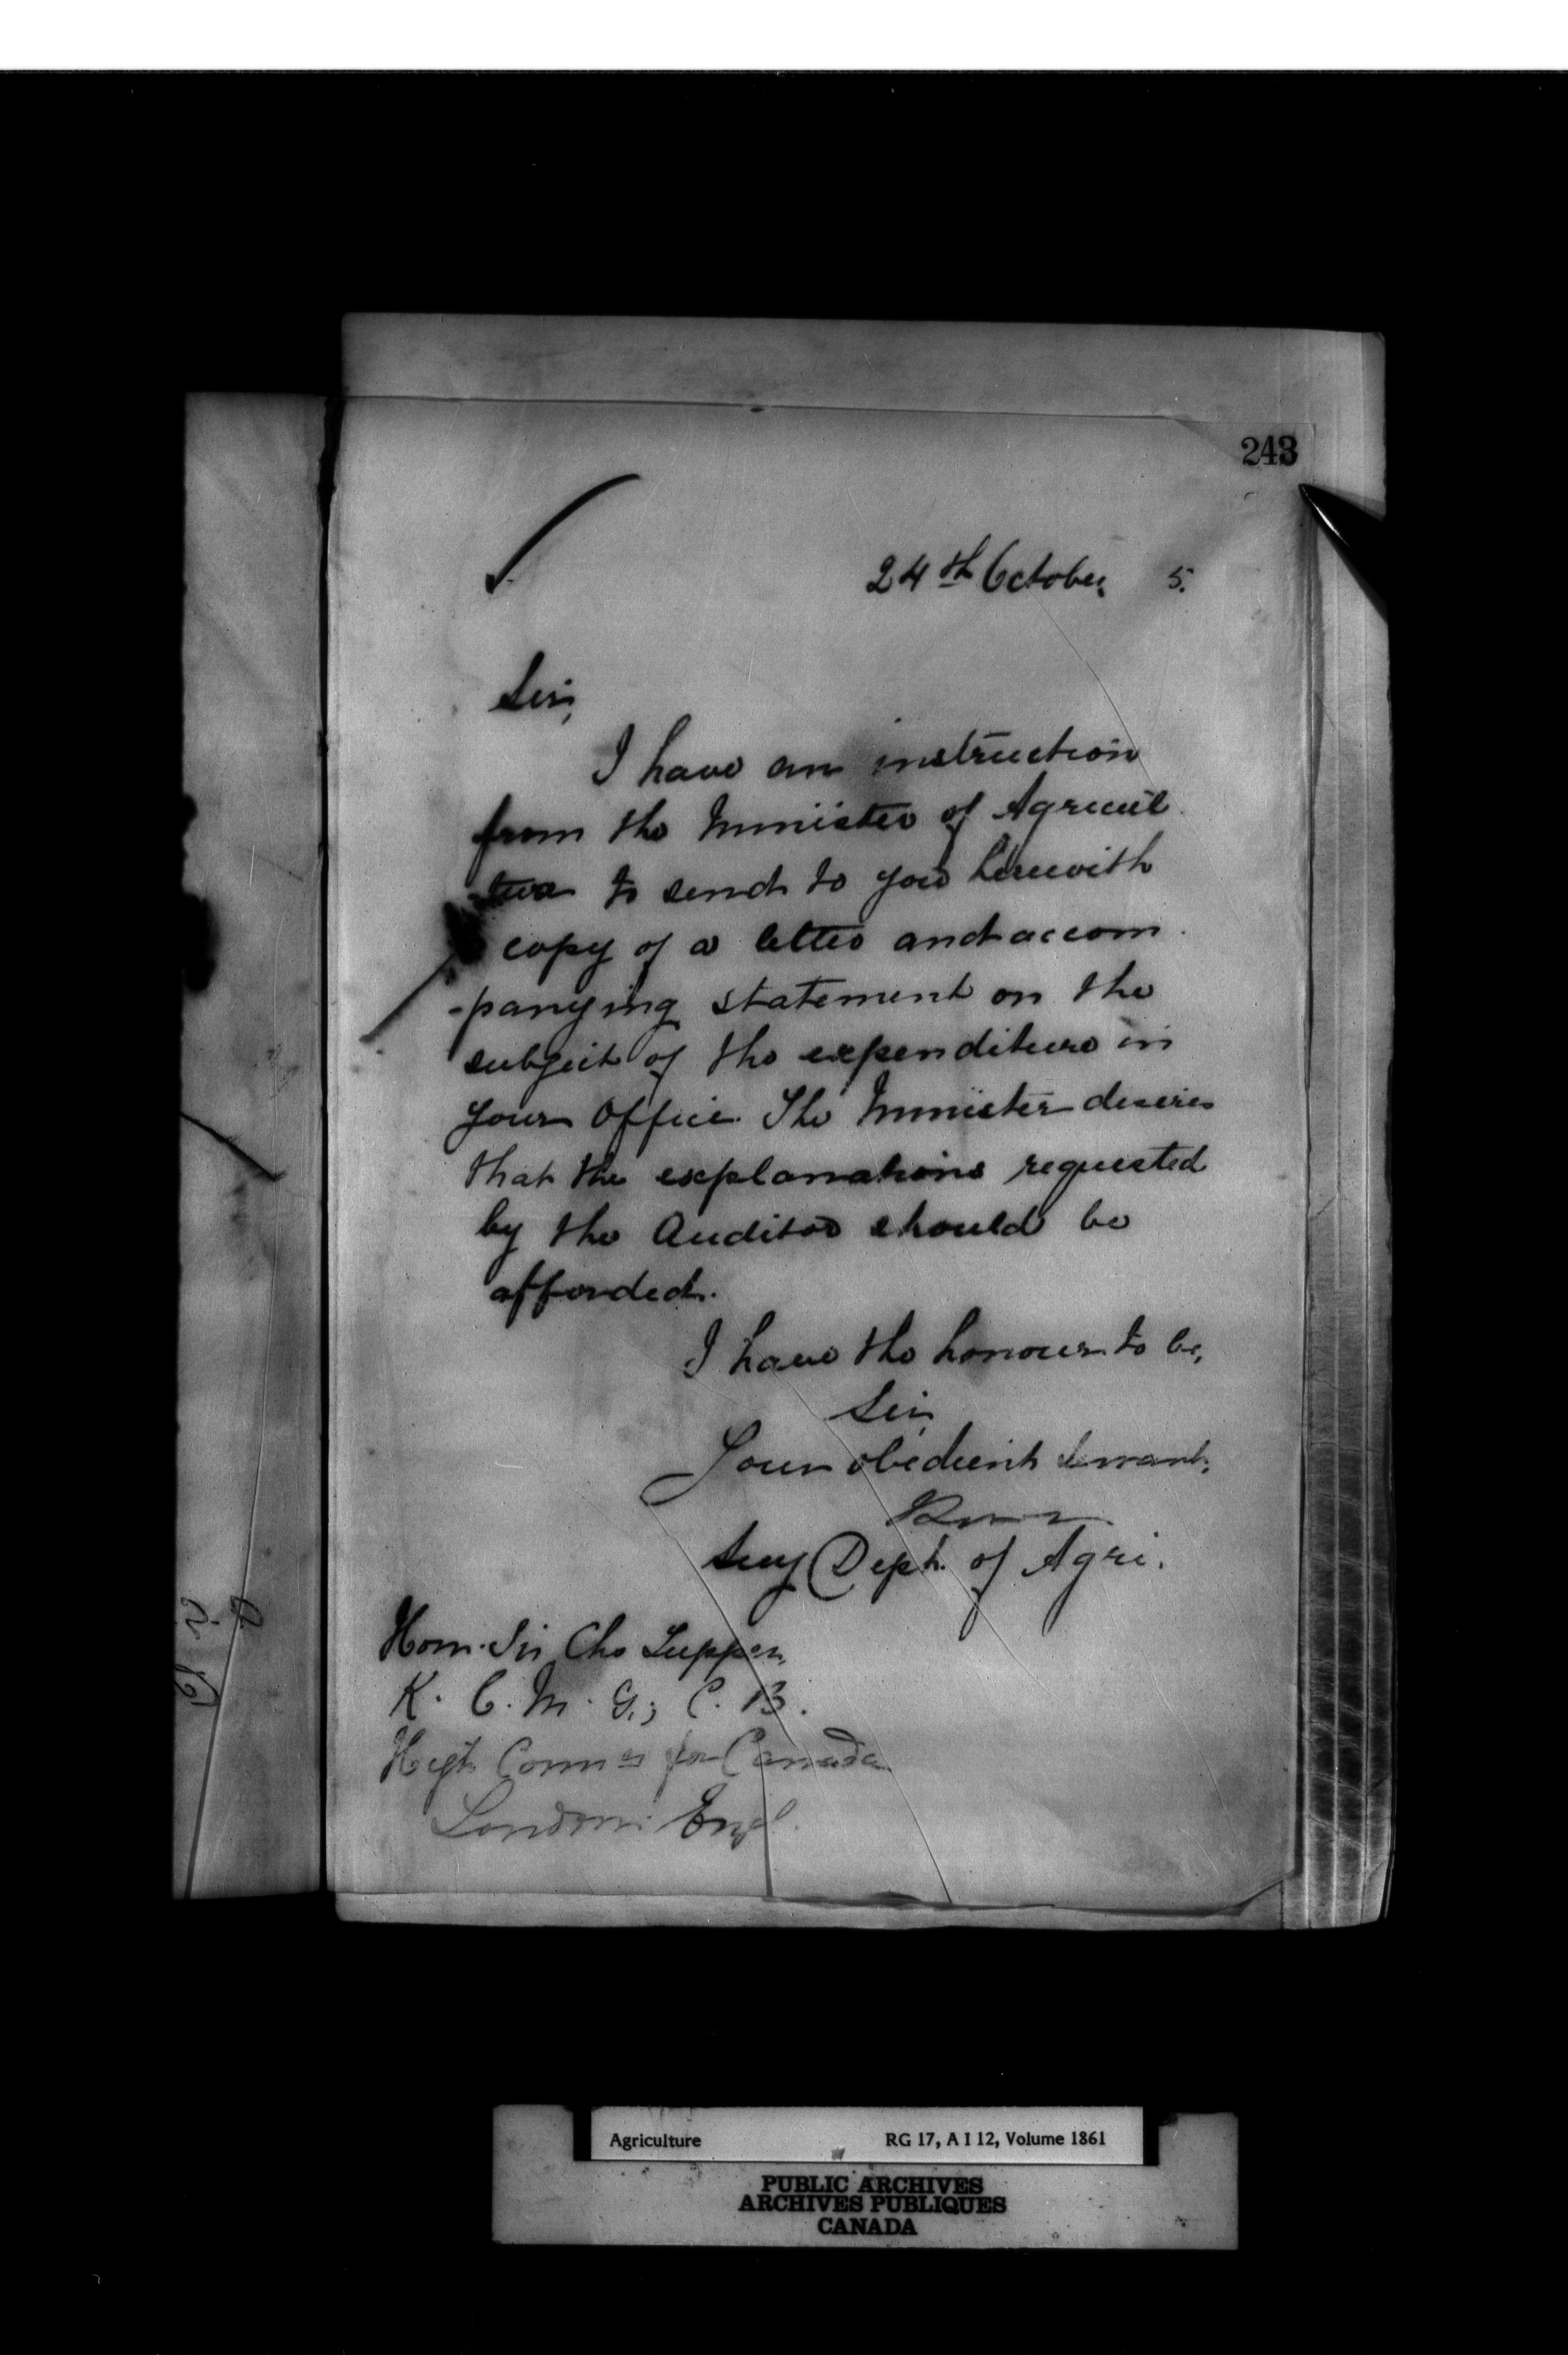 243
24th October, 5.
Sir,
I have an instruction
from the Minister of Agricul
-ture to send to you herewith
copy of a letter and accom
-panying statement on the
subject of the expenditure in
your Office. The Minister desires
that the explanations requested
by the Auditor should be
afforded.
I have the honour to be,
Sir,
Your obedient Servant,
Secy Dept. of Agri.
Hon. Sir Chs Tupper,
K. C. M. G.; C. B.
High Commr for Canada
London Engl.
Agriculture RG 17, A I 12, Volume 1861
PUBLIC ARCHIVES
ARCHIVES PUBLIQUES
CANADA